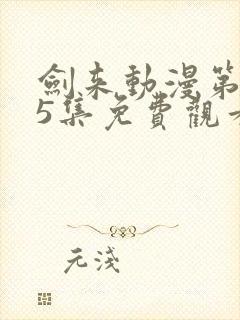 劍来動漫第
5集免費觀
元淺